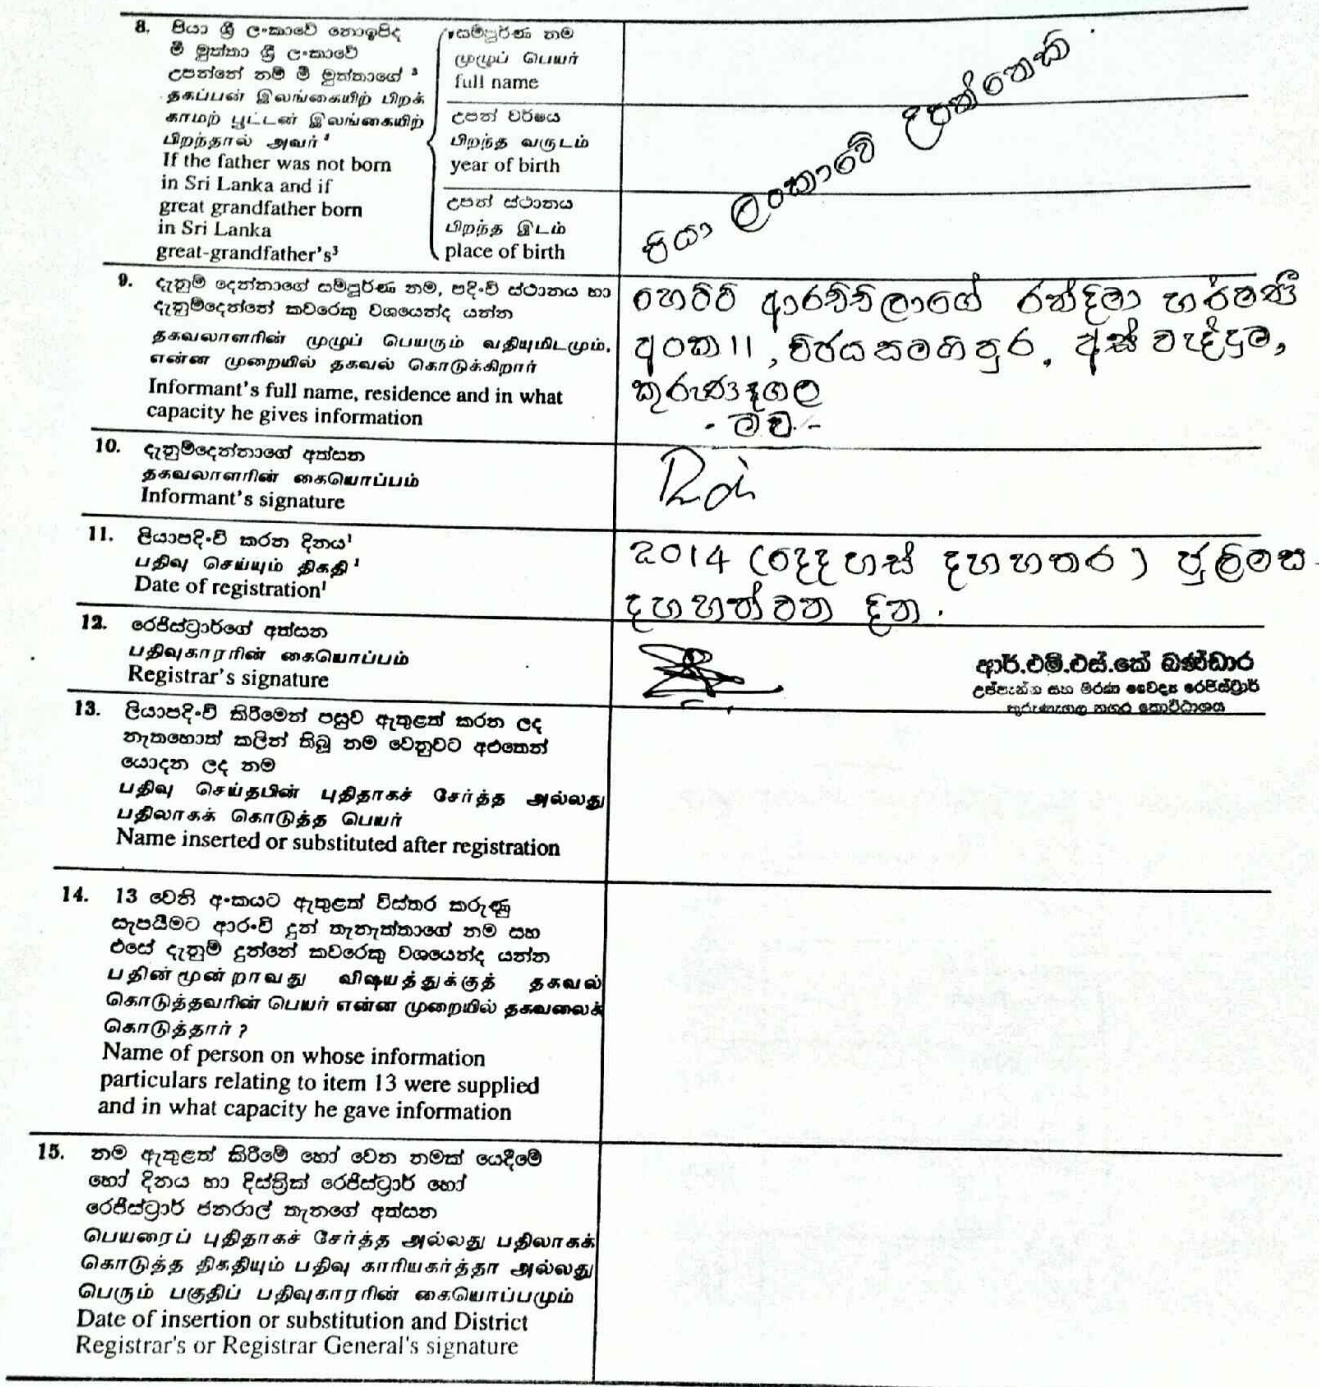 8. පියා ශ්‍රී ලංකාවේ නොඉපිද
මී මුත්තා ශ්‍රී ලංකාවේ
උපන්නේ නම් මී මුත්තාගේ ³
தகப்பன் இலங்கையிற் பிறக்
காமற் பூட்டன் இலங்கையிற்
பிறந்தால் அவர் ³
If the father was not born
in Sri Lanka and if
great grandfather born
in Sri Lanka
great-grandfather's³
සම්පූර්ණ නම
முழுப் பெயர்
full name
උපන් වර්ෂය
பிறந்த வருடம்
year of birth
උපන් ස්ථානය
பிறந்த இடம்
place of birth
පියා ලංකාවේ උපන්නෙකි
9. දැනුම් දෙන්නාගේ සම්පූර්ණ නම, පදිංචි ස්ථානය හා
දැනුම්දෙන්නේ කවරෙකු වශයෙන්ද යන්න
தகவலாளரின் முழுப் பெயரும் வதியுமிடமும்,
என்ன முறையில் தகவல் கொடுக்கிறார்
Informant's full name, residence and in what
capacity he gives information
හෙට්ටි ආරච්චිලාගේ රන්දිමා හර්ෂණී
අංක 11, විජයසමගිපුර, අස්වැද්දුම,
කුරුණෑගල
- මව -
10. දැනුම්දෙන්නාගේ අත්සන
தகவலாளரின் கையொப்பம்
Informant's signature
11. ලියාපදිංචි කරන දිනය¹
பதிவு செய்யும் திகதி ¹
Date of registration¹
2014 (දෙදහස් දහහතර) ජුලිමස
දහහත්වන දින.
12. රෙජිස්ට්‍රාර්ගේ අත්සන
பதிவுகாரரின் கையொப்பம்
Registrar's signature
ආර්.එම්.එස්.කේ බණ්ඩාර
උප්පැන්න සහ මරණ වෛද්‍ය රෙජිස්ට්‍රාර්
කුරුණෑගල නගර කොට්ඨාශය
13. ලියාපදිංචි කිරීමෙන් පසුව ඇතුළත් කරන ලද
නැතහොත් කලින් තිබූ නම වෙනුවට අළුතෙන්
යොදන ලද නම
பதிவு செய்தபின் புதிதாகச் சேர்த்த அல்லது
பதிலாகக் கொடுத்த பெயர்
Name inserted or substituted after registration
14. 13 වෙනි අංකයට ඇතුළත් විස්තර කරුණු
සැපයීමට ආරංචි දුන් තැනැත්තාගේ නම සහ
එසේ දැනුම් දුන්නේ කවරෙකු වශයෙන්ද යන්න
பதின்மூன்றாவது விஷயத்துக்குத் தகவல்
கொடுத்தவரின் பெயர் என்ன முறையில் தகவலைக்
கொடுத்தார் ?
Name of person on whose information
particulars relating to item 13 were supplied
and in what capacity he gave information
15. නම ඇතුළත් කිරීමේ හෝ වෙන නමක් යෙදීමේ
හෝ දිනය හා දිස්ත්‍රික් රෙජිස්ට්‍රාර් හෝ
රෙජිස්ට්‍රාර් ජනරාල් තැනගේ අත්සන
பெயரைப் புதிதாகச் சேர்த்த அல்லது பதிலாகக்
கொடுத்த திகதியும் பதிவு காரியகர்த்தா அல்லது
பெரும் பகுதிப் பதிவுகாரரின் கையொப்பமும்
Date of insertion or substitution and District
Registrar's or Registrar General's signature